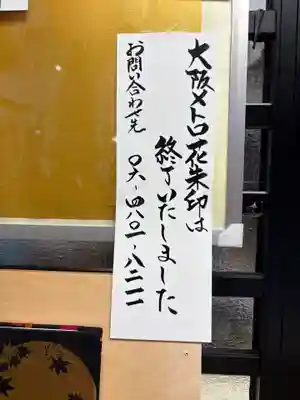 大阪メトロ花朱印は
終了いたしました
お問い合わせ先
〇六-四八〇一-八二一一